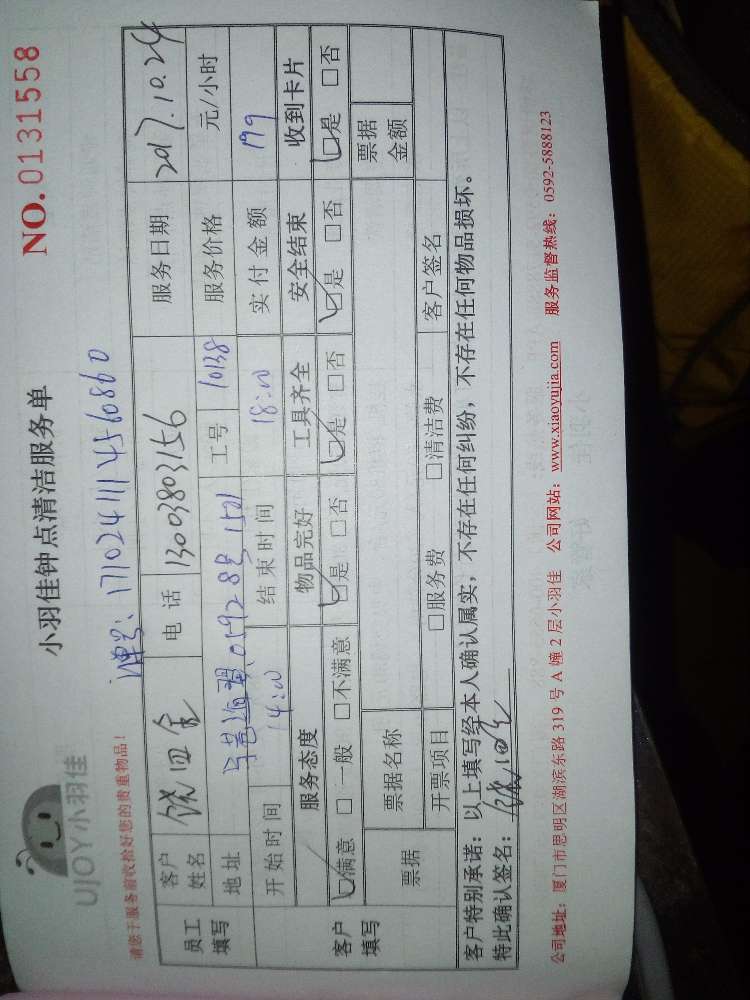 UJOY小羽佳
小羽佳钟点清洁服务单
NO.0131558
请您于服务前收拾好您的贵重物品！
单号：1710241114560860
员工填写
客户姓名 饶四金 电话 13003803156 服务日期 2017.10.24
地址 0592 8号 1501 工号 10138 服务价格 元/小时
开始时间 14:00 结束时间 18:00 实付金额 199
客户填写
服务态度 物品完好 工具齐全 安全结束 收到卡片
☑满意 □一般 □不满意 ☑是 □否 ☑是 □否 ☑是 □否 ☑是 □否
票据 票据名称 票据金额
开票项目 □服务费 □清洁费 客户签名
客户特别承诺：以上填写经本人确认属实，不存在任何纠纷，不存在任何物品损坏。
特此确认签名：饶四金
公司地址：厦门市思明区湖滨东路 319 号 A 幢 2 层小羽佳 公司网站：www.xiaoyujia.com 服务监督热线：0592-5888123